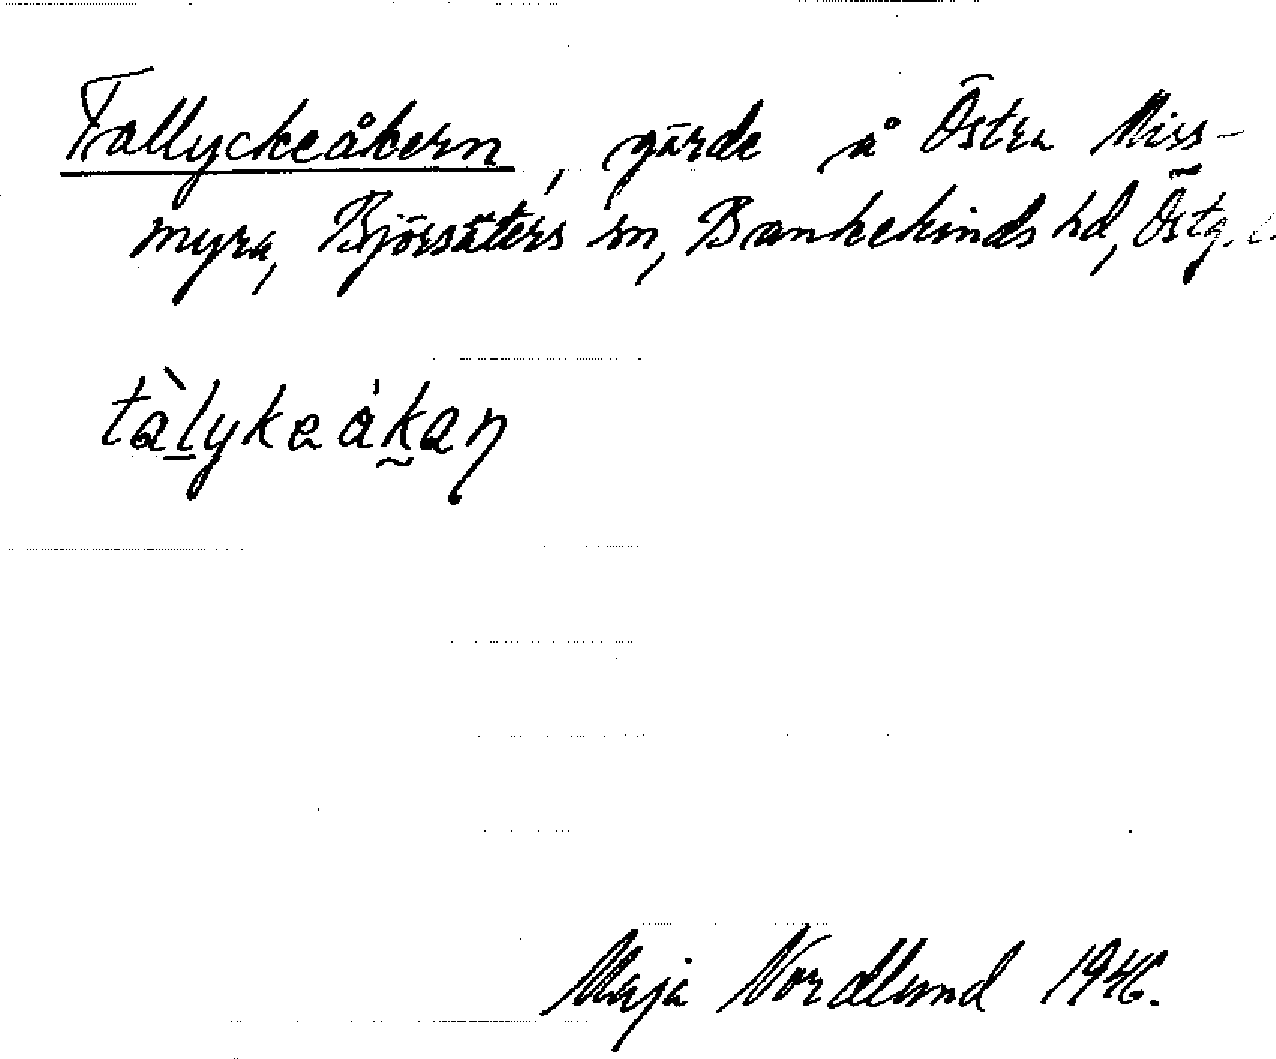 Tallyckeåkern, gärde å Östra Miss-
myra, Björsäters sn, Bankekinds hd, Östg. l.
tàlykaåkaṇ
Maja Nordlund 1946.